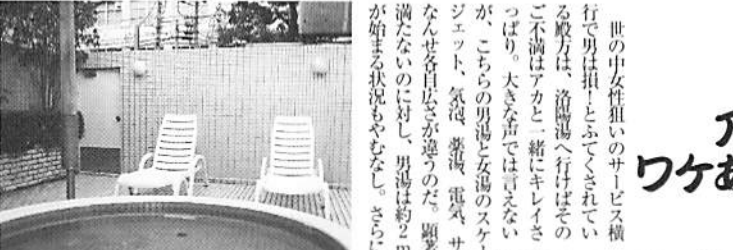 ア
ワケあ
世の中女性狙いのサービス横
行で男は損!とふてくされてい
る殿方は、洛陽湯へ行けばその
ご不満はアカと一緒にキレイさ
っぱり。大きな声では言えない
が、こちらの男湯と女湯のスケ
ジェット、気泡、薬湯、電気、サ
なんせ各自広さが違うのだ。顕著
満たないのに対し、男湯は約2m
が始まる状況もやむなし。さらに